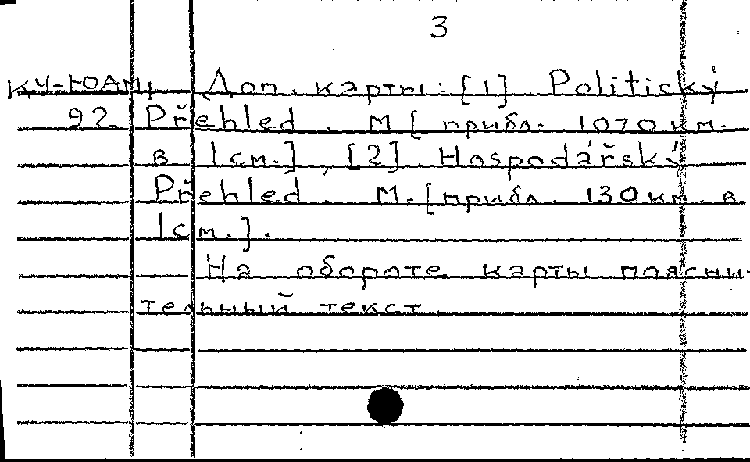 3
КУ-ЮАМ, Доп. карты: [1] Politický
92 Přehled. М [прибл. 1070 км.
в 1см.], [2] Hospodářský
Přehled. М. [прибл. 130 км. в
1см.].
На обороте карты поясни-
тельный текст.